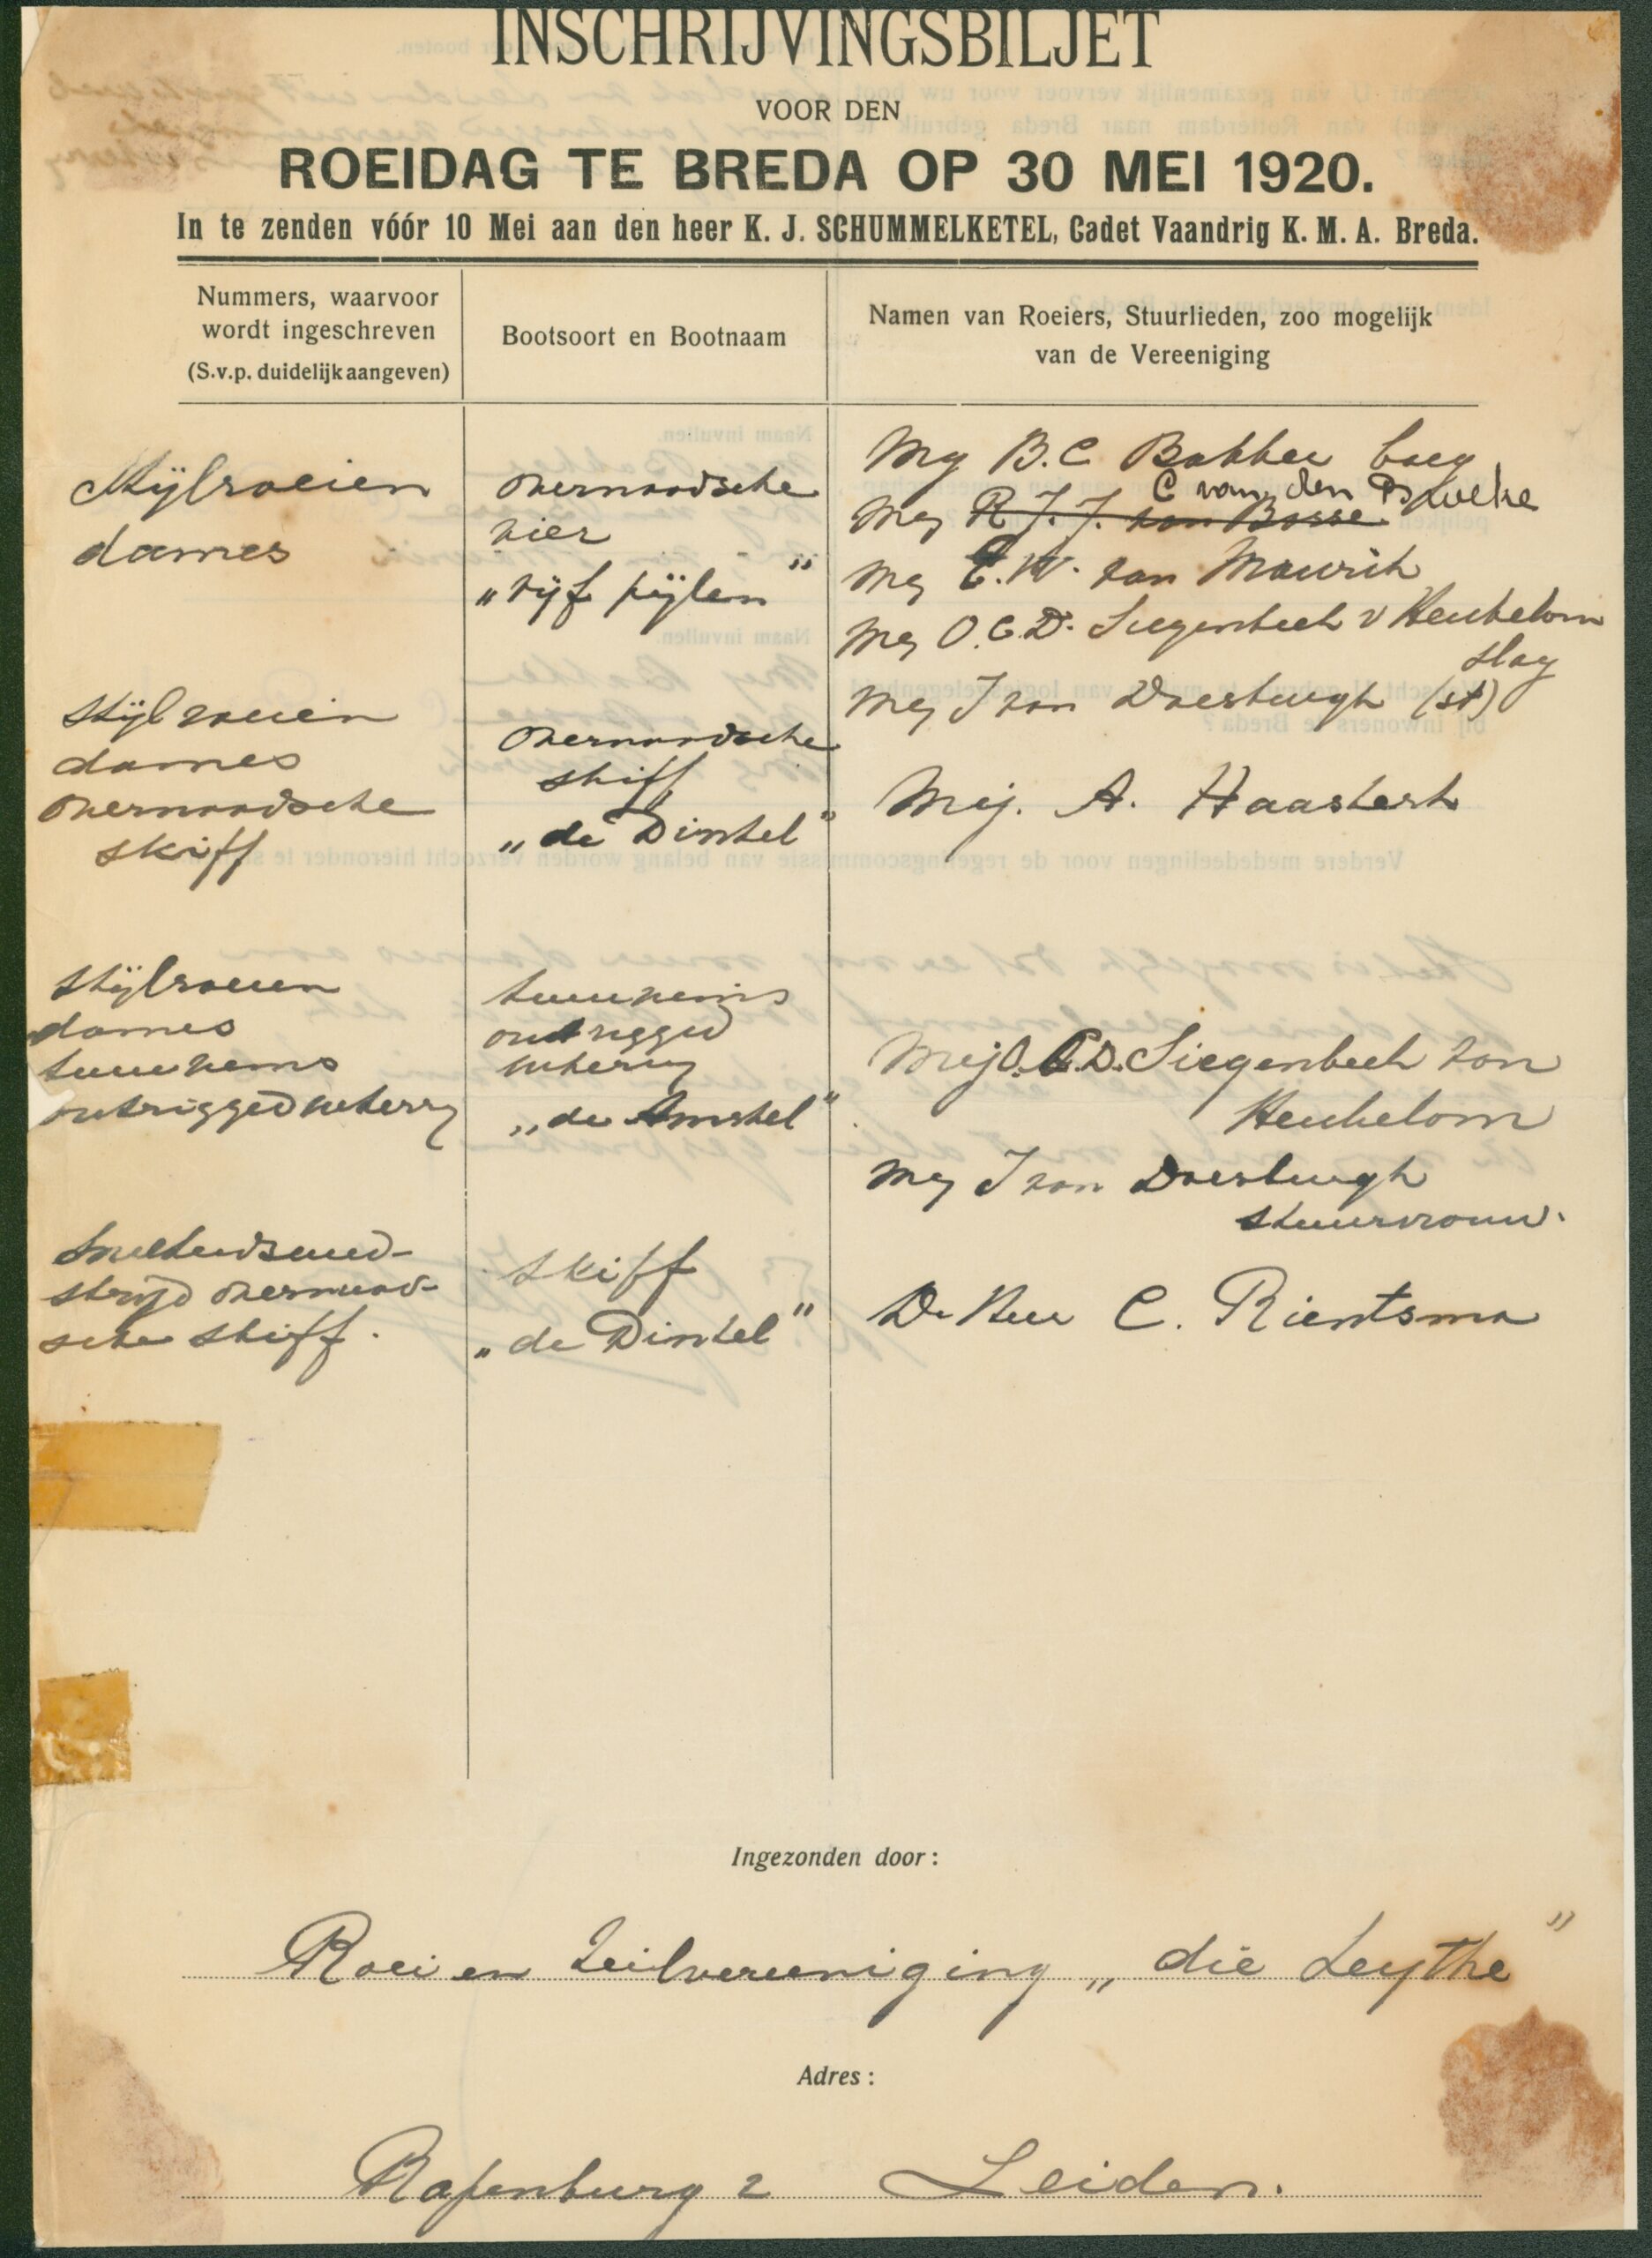 INSCHRIJVINGSBILJET
VOOR DEN
ROEIDAG TE BREDA OP 30 MEI 1920.
In te zenden vóór 10 Mei aan den heer K. J. SCHUMMELKETEL, Cadet Vaandrig K. M. A. Breda.
Nummers, waarvoor
wordt ingeschreven
(S.v.p. duidelijk aangeven)
Bootsoort en Bootnaam
Namen van Roeiers, Stuurlieden, zoo mogelijk
van de Vereeniging
Stijlroeien
dames
overnaadsche
vier
„vijf pijlen”
Mej B. C. Bakker boeg
C van den Broeke
Mej R J. J. van Bosse
Mej E. W. van Mourik
Mej O. C. D. Siegenbeek v Heukelom
slag
Mej J van Doesburgh (st)
Stijlroeien
dames
overnaadsche
skiff
overnaadsche
skiff
„de Dintel”
Mej. A. Haastert
Stijlroeien
dames
twee riems
outriggedwherry
twee riems
outrigged
wherry
„de Amstel”
Mej O. C. D. Siegenbeek van
Heukelom
Mej J van Doesburgh
stuurvrouw.
Snelheidswed-
strijd overnaad-
sche skiff.
skiff
„de Dintel”
De Heer C. Rientsma
Ingezonden door:
Roei en Zeilvereeniging „die Leythe”
Adres:
Rapenburg 2 Leiden.